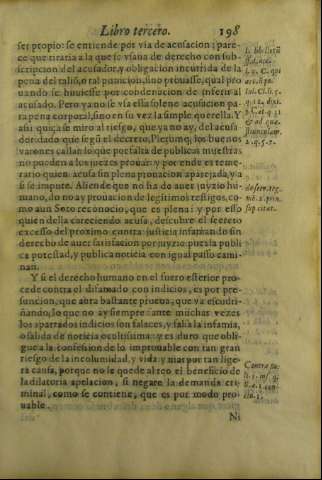 Libro tercero. 198
ser propio: se entiende por via de acusacion; pare-
ce que tiraria a la que se vsaua de derecho con sub-
scripcion del acusador, y obligacion incurrida de la
pena del talió, o tal punicion, sino prouasse, qual pro
uando se huuiesse por condenacion de inferir al
acusado. Pero ya no se vía essa solene acusacion pa-
ra pena corporal, sino en su vez la simple querella. Y
assi quiça se miro al riesgo, que ya no ay, del acusa
dor, dado que sea el decreto, Plerunq; los buenos
varones callan lo que por falta de publicas muestras
no pueden a los juezes prouar: y por ende es teme-
rario quien acusa sin plena prouacion aparejada, y a
si se impute. Aliende que no ha de auer juyzio hu-
mano, do no ay prouacion de legitimos testigos, co-
mo aun Soto reconocio, que es plena: y por esso
quien della careciendo acusa, descubre el secreto
excesso del proximo contra justicia infamando sin
derecho de auer satisfacion por juyzio: pues la publi
ca potestad, y publica noticia con igual passo cami-
nan.
Y si el derecho humano en el fuero esterior pro
cede contra el difamado con indicios, es por pre-
suncion, que abra bastante prueua, que va escudri-
ñando, lo que no ay siempre: ante muchas vezes
los apartados indicios son falaces, y falsa la infamia,
o salida de noticia ocultissima: y es duro que obli-
gue a la confession de lo improuable con tan gran
riesgo de la incolumidad, y vida y mas por tan lige-
ra causa, porque no le quede al reo el beneficio de
la dilatoria apelacion, si negare la demanda cri-
minal, como se contiene, que es por modo pro-
uable.
Ni
2. q. 5.
sup. citat.